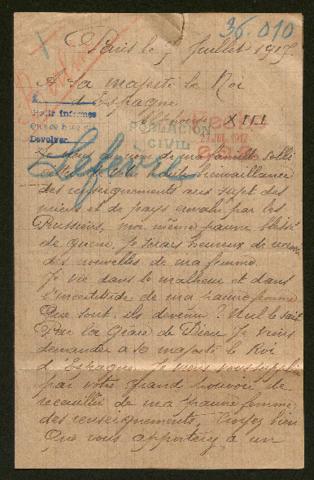 36.010
Paris le 7 Juillet 1917
A Sa majesté le Roi
d'Espagne
Alfonse XIII
Pedir informes
Devolver
POBLACIÓN
CIVIL
JUL. 1917
Lefevre
nom de ma famille
bienveillance
des renseignements au sujet des
miens et du pays envahi par les
Prussiens, moi même pauvre blessé
de guerre, Je serais heureux de
des nouvelles de ma femme.
Je vis dans le malheur et dans
l'incertitude de ma pauvre femme
Que sont, ils devenu ? Nul le sait
Par la Grâce de Dieu Je viens
demander a sa majesté le Roi
d'Espagne
par votre grand pouvoir de
recueillir de ma pauvre femme
des renseignements, Croyez bien
Que vous apporterez a un